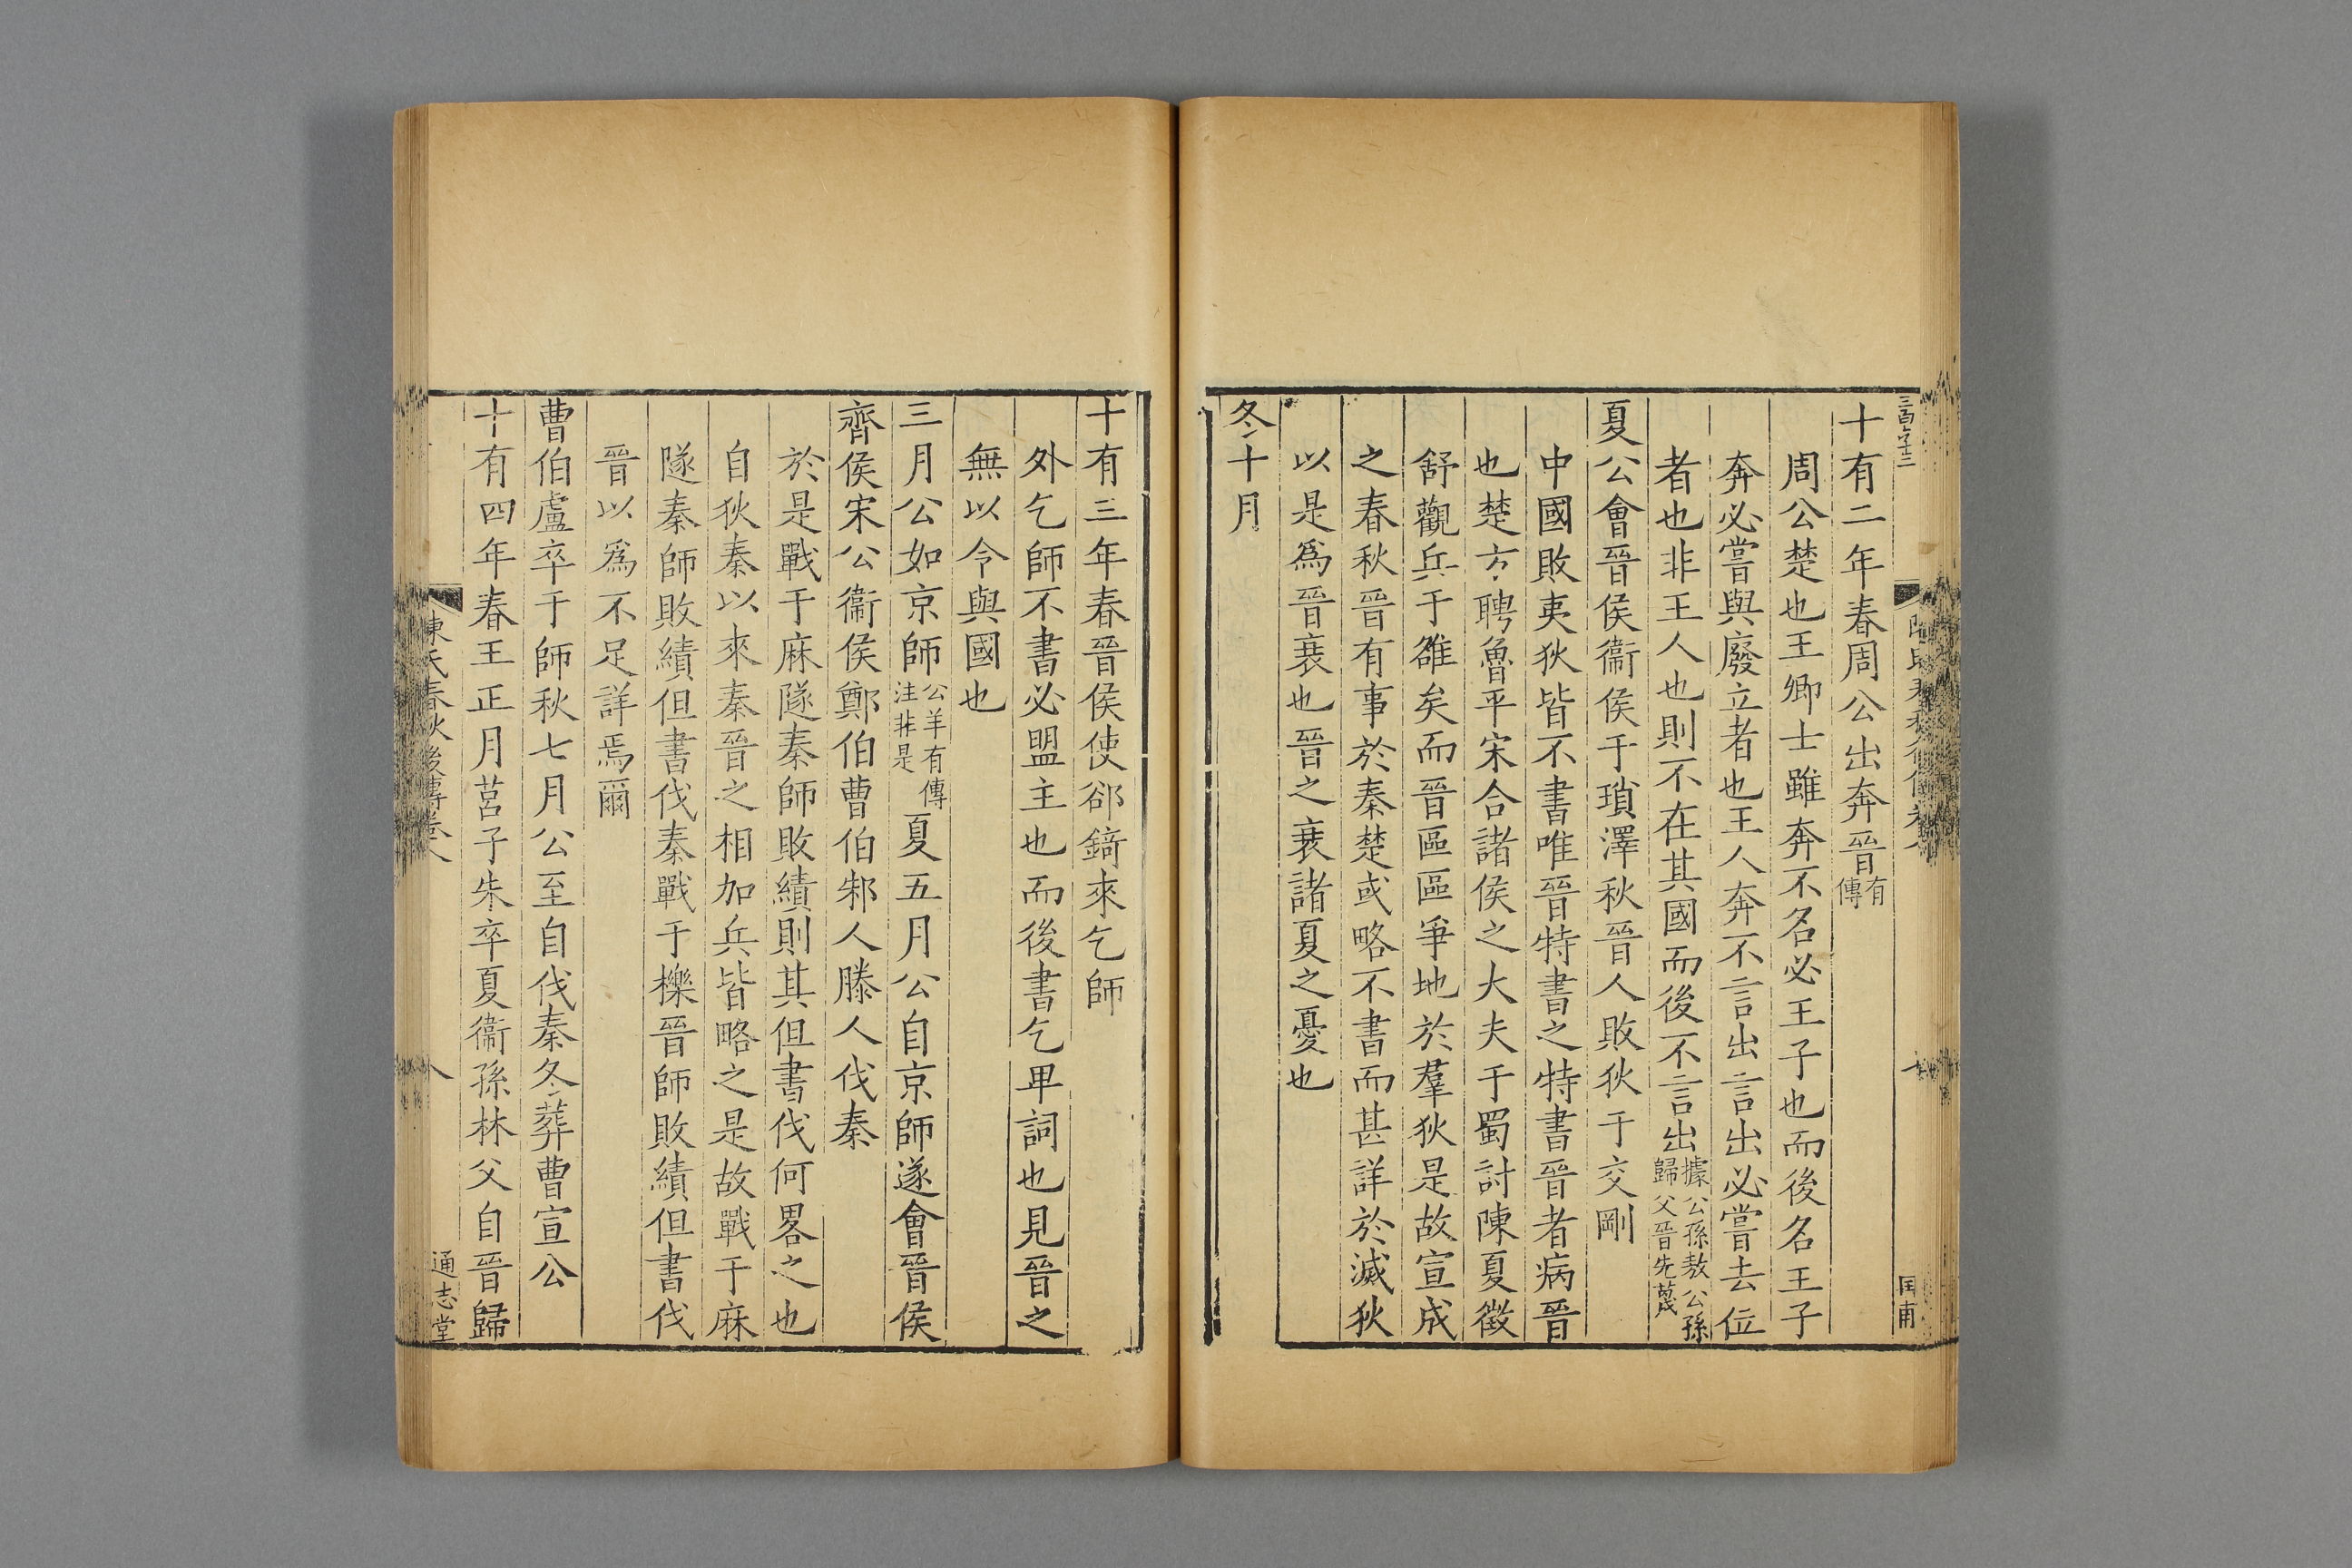 十有二年春周公出奔晉有傳
周公楚也王卿士雖奔不名必王子也而後名王子
奔必嘗與廢立者也王人奔不言出言出必嘗去位
者也非王人也則不在其國而後不言出據公孫敖公孫歸父晉先蔑
夏公會晉侯衞侯于瑣澤秋晉人敗狄于交剛
中國敗夷狄皆不書唯晉特書之特書晉者病晉
也楚方聘魯平宋合諸侯之大夫于蜀討陳夏徵
舒觀兵于雒矣而晉區區爭地於羣狄是故宣成
之春秋晉有事於秦楚或略不書而甚詳於滅狄
以是爲晉衰也晉之衰諸夏之憂也
冬十月
十有三年春晉侯使郤錡來乞師
外乞師不書必盟主也而後書乞卑詞也見晉之
無以令與國也
三月公如京師公羊有傳注非是夏五月公自京師遂會晉侯
齊侯宋公衞侯鄭伯曹伯邾人滕人伐秦
於是戰于麻隧秦師敗績則其但書伐何畧之也
自狄秦以來秦晉之相加兵皆略之是故戰于麻
隧秦師敗績但書伐秦戰于櫟晉師敗績但書伐
晉以爲不足詳焉爾
曹伯盧卒于師秋七月公至自伐秦冬葬曹宣公
十有四年春王正月莒子朱卒夏衞孫林父自晉歸
陳氏春秋後傳卷八
八
通志堂